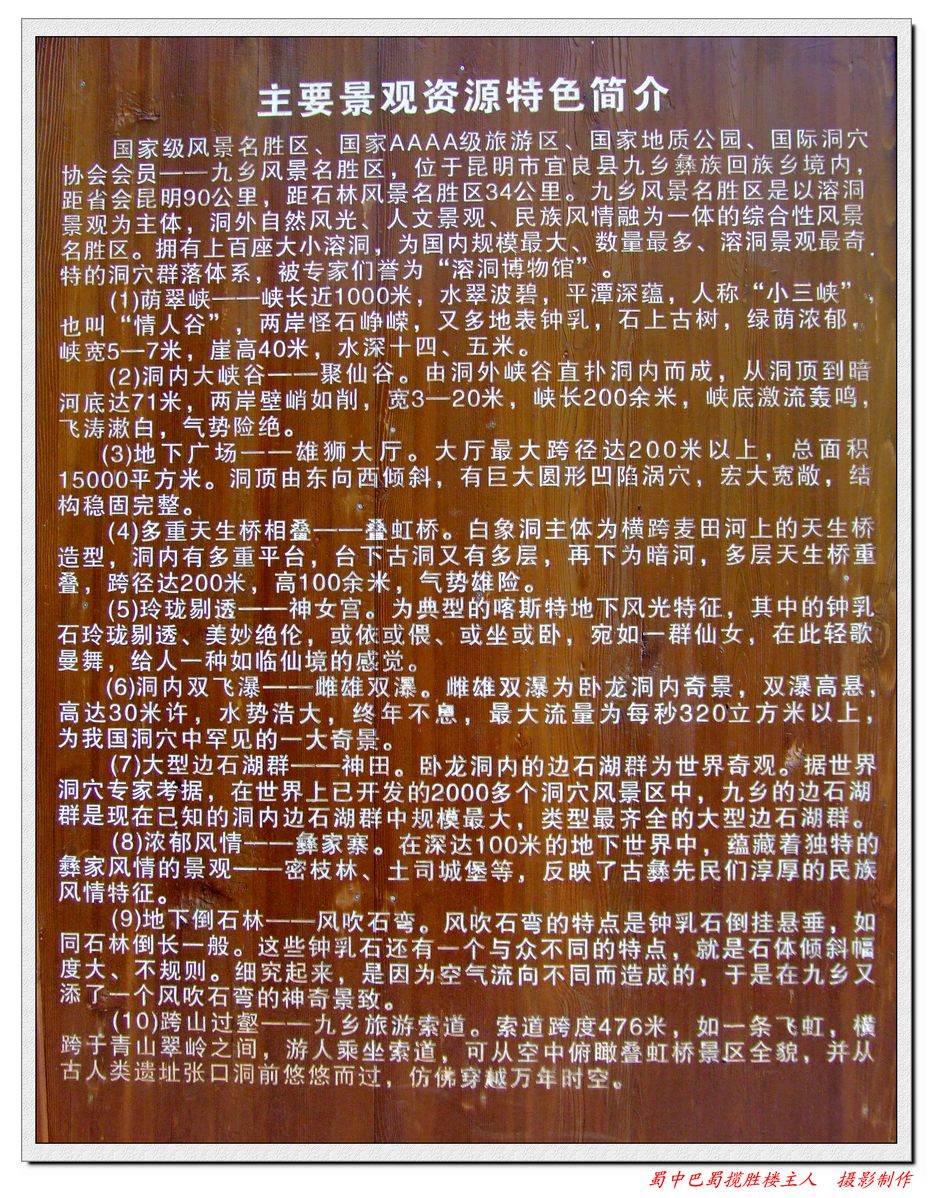 主要景观资源特色简介
国家级风景名胜区、国家AAAA级旅游区、国家地质公园、国际洞穴
协会会员——九乡风景名胜区，位于昆明市宜良县九乡彝族回族乡境内，
距省会昆明90公里，距石林风景名胜区34公里。九乡风景名胜区是以溶洞
景观为主体，洞外自然风光、人文景观、民族风情融为一体的综合性风景
名胜区。拥有上百座大小溶洞，为国内规模最大、数量最多、溶洞景观最奇
特的洞穴群落体系，被专家们誉为“溶洞博物馆”。
(1)荫翠峡——峡长近1000米，水翠波碧，平潭深蕴，人称“小三峡”，
也叫“情人谷”，两岸怪石峥嵘，又多地表钟乳，石上古树，绿荫浓郁，
峡宽5—7米，崖高40米，水深十四、五米。
(2)洞内大峡谷——聚仙谷。由洞外峡谷直扑洞内而成，从洞顶到暗
河底达71米，两岸壁峭如削，宽3—20米，峡长200余米，峡底激流轰鸣，
飞涛漱白，气势险绝。
(3)地下广场——雄狮大厅。大厅最大跨径达200米以上，总面积
15000平方米。洞顶由东向西倾斜，有巨大圆形凹陷涡穴，宏大宽敞，结
构稳固完整。
(4)多重天生桥相叠——叠虹桥。白象洞主体为横跨麦田河上的天生桥
造型，洞内有多重平台，台下古洞又有多层，再下为暗河，多层天生桥重
叠，跨径达200米，高100余米，气势雄险。
(5)玲珑剔透——神女宫。为典型的喀斯特地下风光特征，其中的钟乳
石玲珑剔透、美妙绝伦，或依或偎、或坐或卧，宛如一群仙女，在此轻歌
曼舞，给人一种如临仙境的感觉。
(6)洞内双飞瀑——雌雄双瀑。雌雄双瀑为卧龙洞内奇景，双瀑高悬，
高达30米许，水势浩大，终年不息，最大流量为每秒320立方米以上，
为我国洞穴中罕见的一大奇景。
(7)大型边石湖群——神田。卧龙洞内的边石湖群为世界奇观。据世界
洞穴专家考据，在世界上已开发的2000多个洞穴风景区中，九乡的边石湖
群是现在已知的洞内边石湖群中规模最大，类型最齐全的大型边石湖群。
(8)浓郁风情——彝家寨。在深达100米的地下世界中，蕴藏着独特的
彝家风情的景观——密枝林、土司城堡等，反映了古彝先民们淳厚的民族
风情特征。
(9)地下倒石林——风吹石弯。风吹石弯的特点是钟乳石倒挂悬垂，如
同石林倒长一般。这些钟乳石还有一个与众不同的特点，就是石体倾斜幅
度大、不规则。细究起来，是因为空气流向不同而造成的，于是在九乡又
添了一个风吹石弯的神奇景致。
(10)跨山过壑——九乡旅游索道。索道跨度476米，如一条飞虹，横
跨于青山翠岭之间，游人乘坐索道，可从空中俯瞰叠虹桥景区全貌，并从
古人类遗址张口洞前悠悠而过，仿佛穿越万年时空。
蜀中巴蜀揽胜楼主人 摄影制作